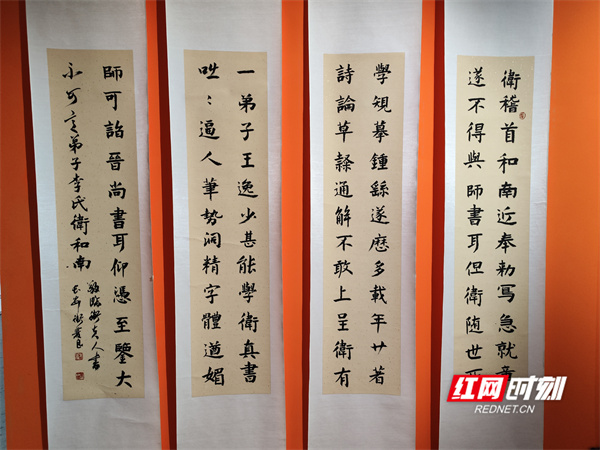 衛稽首和南近奉勅寫急就
遂不得與師書耳但衛随世
學規摹鍾繇遂歷多載年廿著
詩論草隸通解不敢上呈衛有
一弟子王逸少甚能學衛真書
咄〻逼人筆勢洞精字體遒媚
師可詣晉尚書耳仰憑至鑒大
不可言弟子李氏衛和南
臨衛夫人書
红网时刻
REDNET.CN